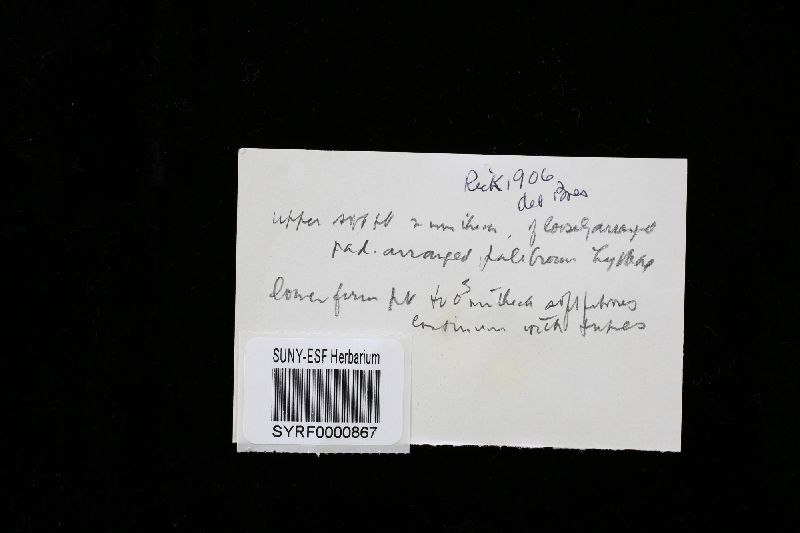 Rick, 1906
det Bres
upper soft pt 2 mm thick, of loosely arranged
rad. arranged, pale brown hyphae
lower firm pt to 0 5 mm thick soft fibrous
continuum with tubes
SUNY-ESF Herbarium
SYRF0000867